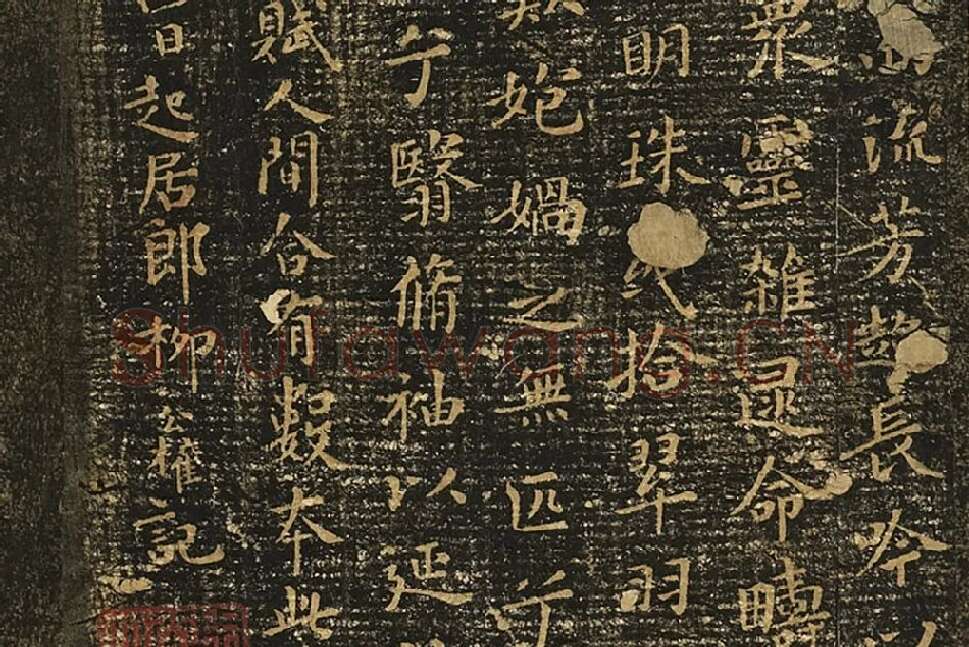 流芳超長吟以
眾靈雜遝命疇
眀珠或拾翠羽
歎㚿媧之無匹兮
兮翳脩袖以延
賦人間合有數本此
日起居郎柳公權記
Shufawang.CN